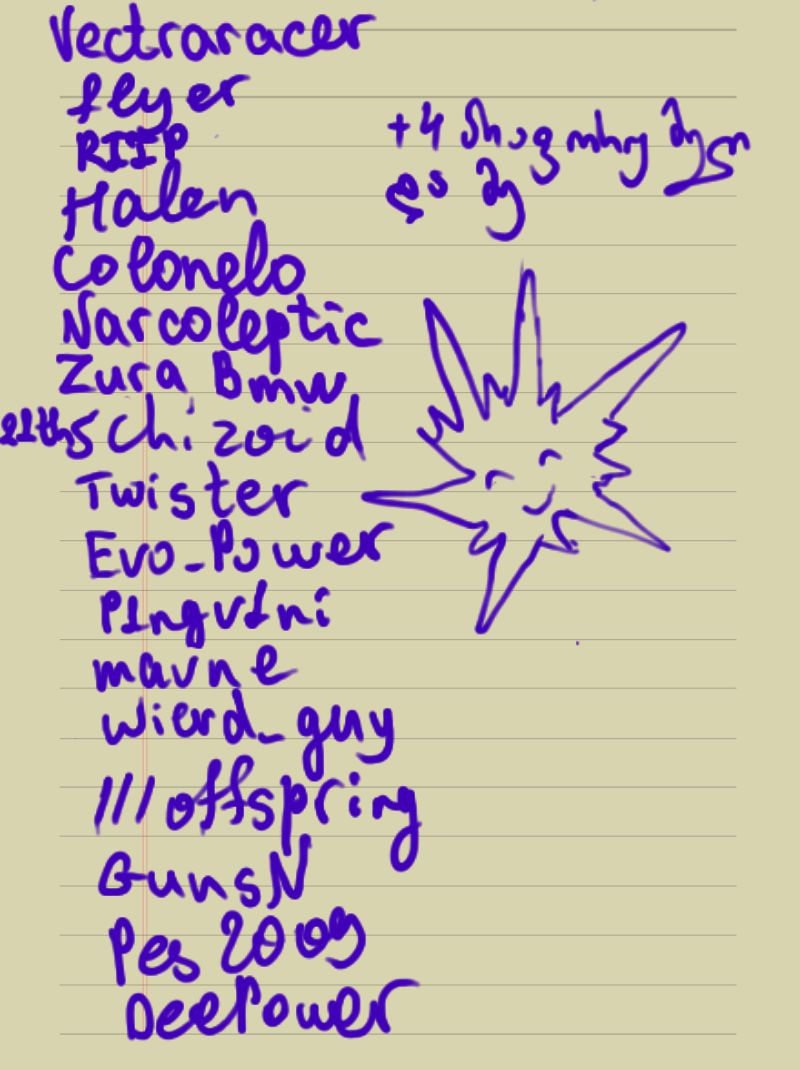 Vectraracer
flyer
RIIP
+4
Halen
Colonelo
Narcoleptic
Zura Bmw
21th Schizoid
Twister
Evo_Power
P1ngv1ni
mavne
wierd_guy
///offspring
GunsN
Pes 2009
DeePower